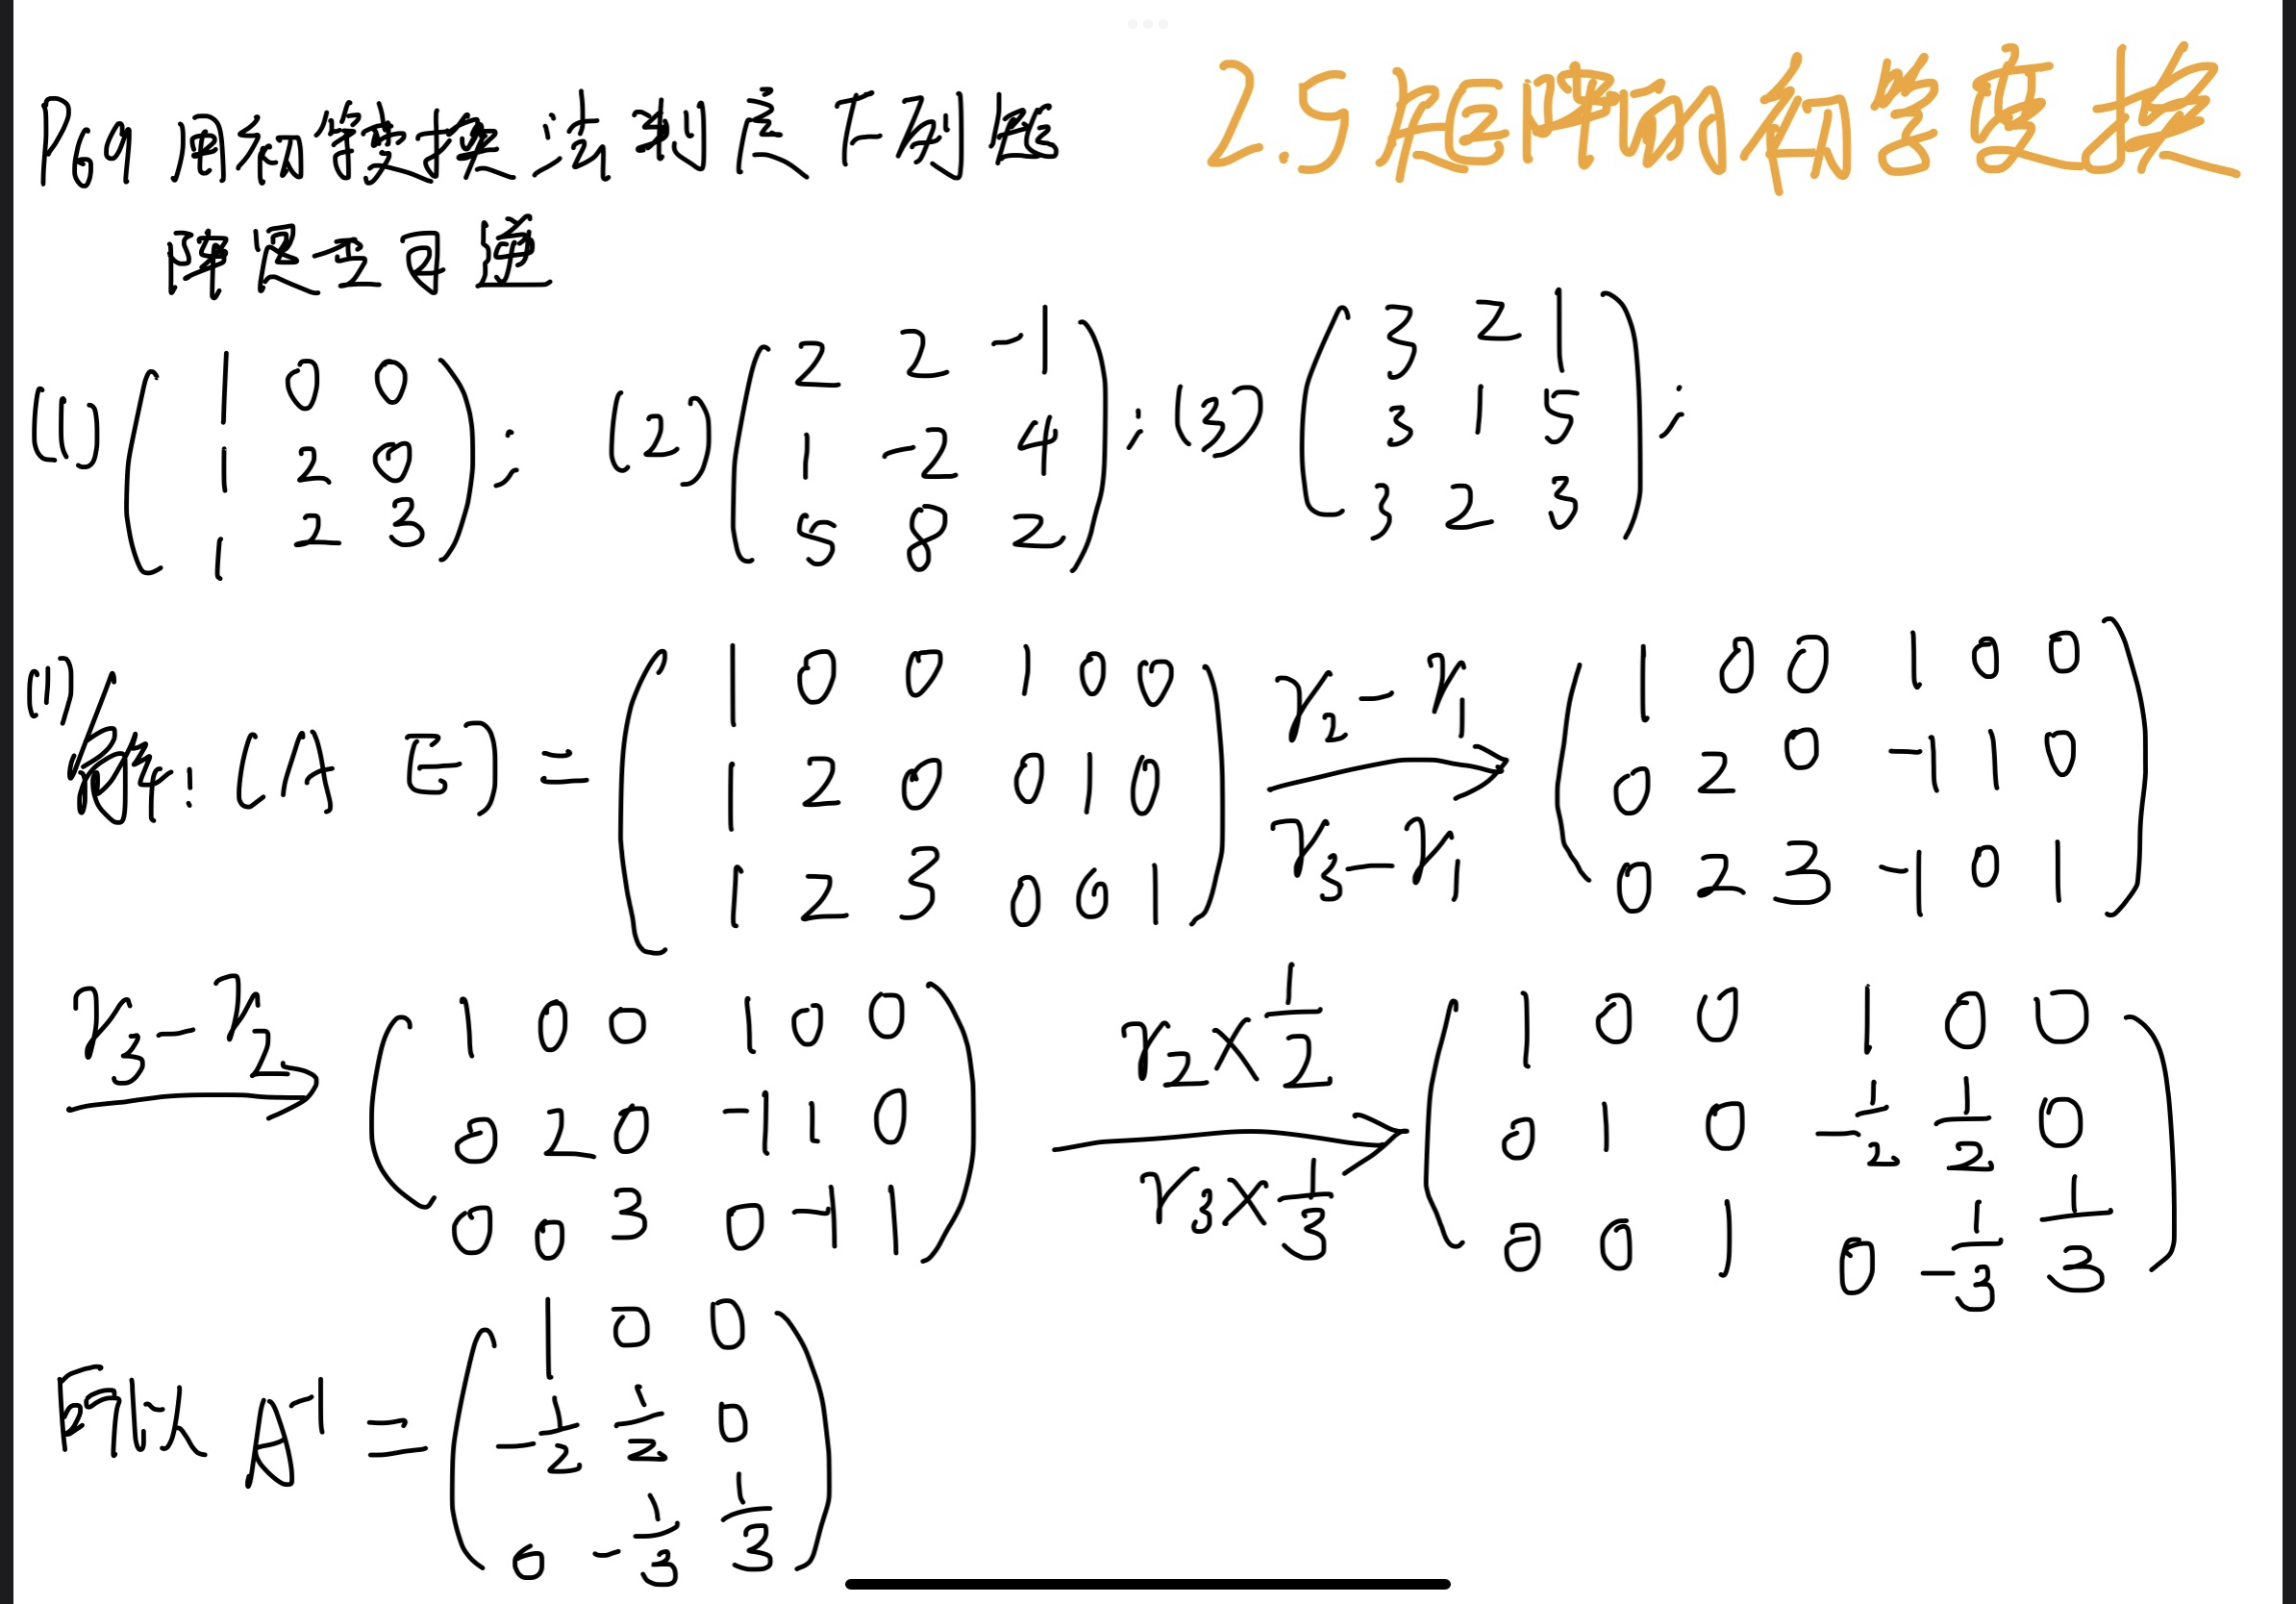 P69 用初等变换法判定下列矩
2.5矩阵的初等变换
阵是否可逆
(1) ( 1 0 0 ; 1 2 0 ; 1 2 3 ) ; (2) ( 2 2 -1 ; 1 -2 4 ; 5 8 2 ) ; (3) ( 3 2 1 ; 3 1 5 ; 3 2 3 ) ;
(1) 解: (A E) = ( 1 0 0 1 0 0 ; 1 2 0 0 1 0 ; 1 2 3 0 0 1 ) r2-r1 r3-r1 → ( 1 0 0 1 0 0 ; 0 2 0 -1 1 0 ; 0 2 3 -1 0 1 )
r3-r2 → ( 1 0 0 1 0 0 ; 0 2 0 -1 1 0 ; 0 0 3 0 -1 1 ) r2×1/2 r3×1/3 → ( 1 0 0 1 0 0 ; 0 1 0 -1/2 1/2 0 ; 0 0 1 0 -1/3 1/3 )
所以 A⁻¹ = ( 1 0 0 ; -1/2 1/2 0 ; 0 -1/3 1/3 )